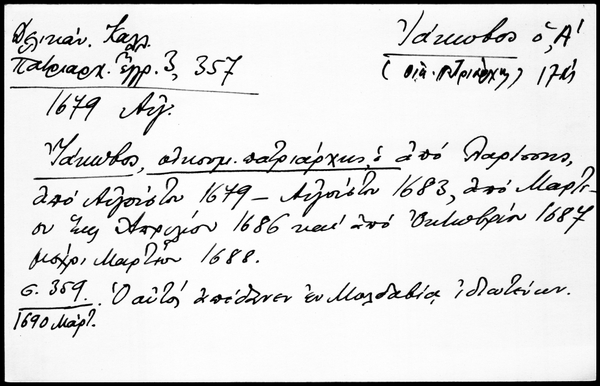 Δελικάν. Καλλ.
Πατριαρχ. ἔγγρ. 3, 357
Ἰάκωβος ὁ Α΄
(οἰκ. πατριάρχης) 17ος
1679 Αὐγ.
Ἰάκωβος, οἰκουμ. πατριάρχης, ὁ ἀπό Λαρίσσης,
ἀπό Αὐγούστου 1679 – Αὐγούστου 1683, ἀπό Μαρτί-
ου ἕως Ἀπριλίου 1686 καί ἀπό Ὀκτωβρίου 1687
μέχρι Μαρτίου 1688.
σ. 359. Ὁ αὐτός ἀπέθανεν ἐν Μολδαβίᾳ ἰδιωτεύων.
1690 Μάρτ.